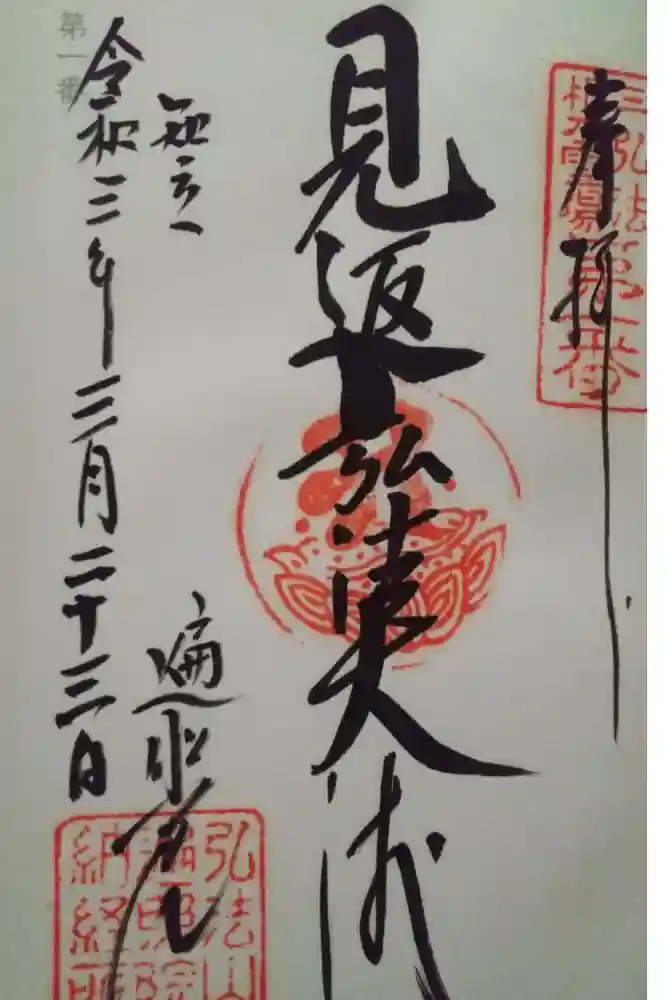 奉拝
三弘法
第一番
見返弘法大師
知立
遍照院
令和三年二月二十三日
第一番
弘法山
遍照院
納経所